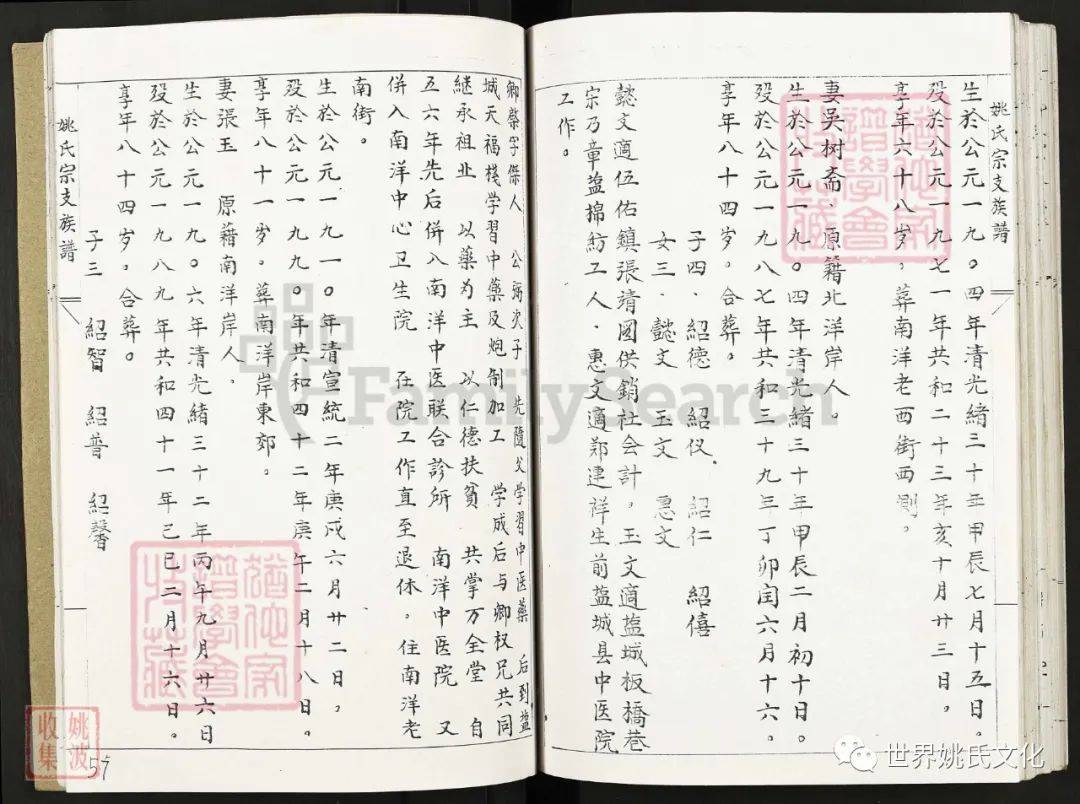 姚氏宗支族譜
生於公元一九〇四年清光緒三十年甲辰七月十五日。
殁於公元一九七一年共和二十三年亥十月廿三日。
享年六十八岁，葬南洋老西街西側。
妻吴树斋．原籍北洋岸人。
生於公元一九〇四年清光緒三十年甲辰二月初十日。
殁於公元一九八七年共和三十九年丁卯闰六月十六。
享年八十四岁，合葬。
子四．紹德 紹仪 紹仁 紹僖
女三．懿文 玉文 惠文
懿文適伍佑鎮張靖国供銷社会計．玉文適盐城板橋巷
宗乃章盐棉紡工人．惠文適郑建祥生前盐城县中医院
工作。
卿榮字傑人 公 次子 先隨父学習中医藥 后到盐
城天福棧学習中藥及炮制加工 学成后与卿权兄共同
継承祖业 以藥为主 以仁德扶貧 共掌万全堂 自
五六年先后併入南洋中医联合診所 南洋中医院 又
併入南洋中心卫生院 在院工作直至退休。住南洋老
南街。
生於公元一九一〇年清宣統二年庚戌六月廿二日，
殁於公元一九九〇年共和四十二年庚午二月十八日。
享年八十一岁。葬南洋岸東郊。
妻張玉 原藉南洋岸人．
生於公元一九〇六年清光緒三十二年丙午九月廿六日
殁於公元一九八九年共和四十一年己巳二月十六日。
享年八十四岁，合葬。
子三 紹智 紹普 紹馨
姚氏宗支族譜
57
姚波
收集
FamilySearch
世界姚氏文化